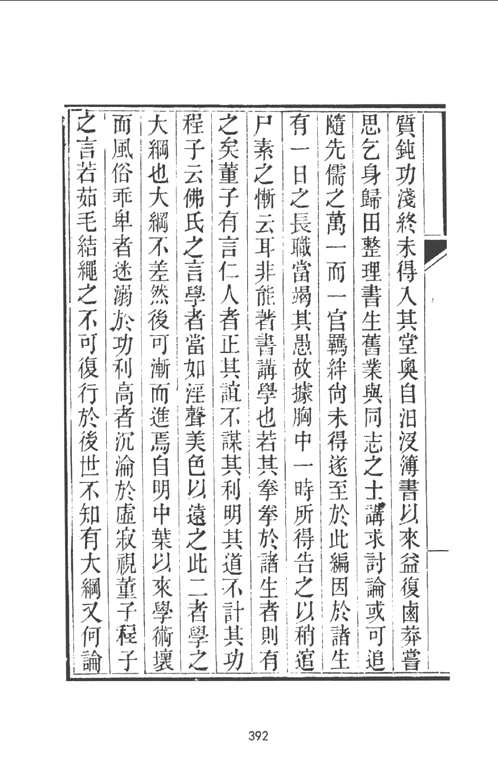 質鈍功淺終未得入其堂奧自汨沒簿書以來益復鹵莽嘗
思乞身歸田整理書生舊業與同志之士講求討論或可追
隨先儒之萬一而一官羈絆尙未得遂至於此編因於諸生
有一日之長職當竭其愚故據胸中一時所得告之以稍逭
尸素之慚云耳非能著書講學也若其拳拳於諸生者則有
之矣董子有言仁人者正其誼不謀其利明其道不計其功
程子云佛氏之言學者當如淫聲美色以遠之此二者學之
大綱也大綱不差然後可漸而進焉自明中葉以來學術壞
而風俗乖卑者迷溺於功利高者沉淪於虛寂視董子程子
之言若茹毛結繩之不可復行於後世不知有大綱又何論
392